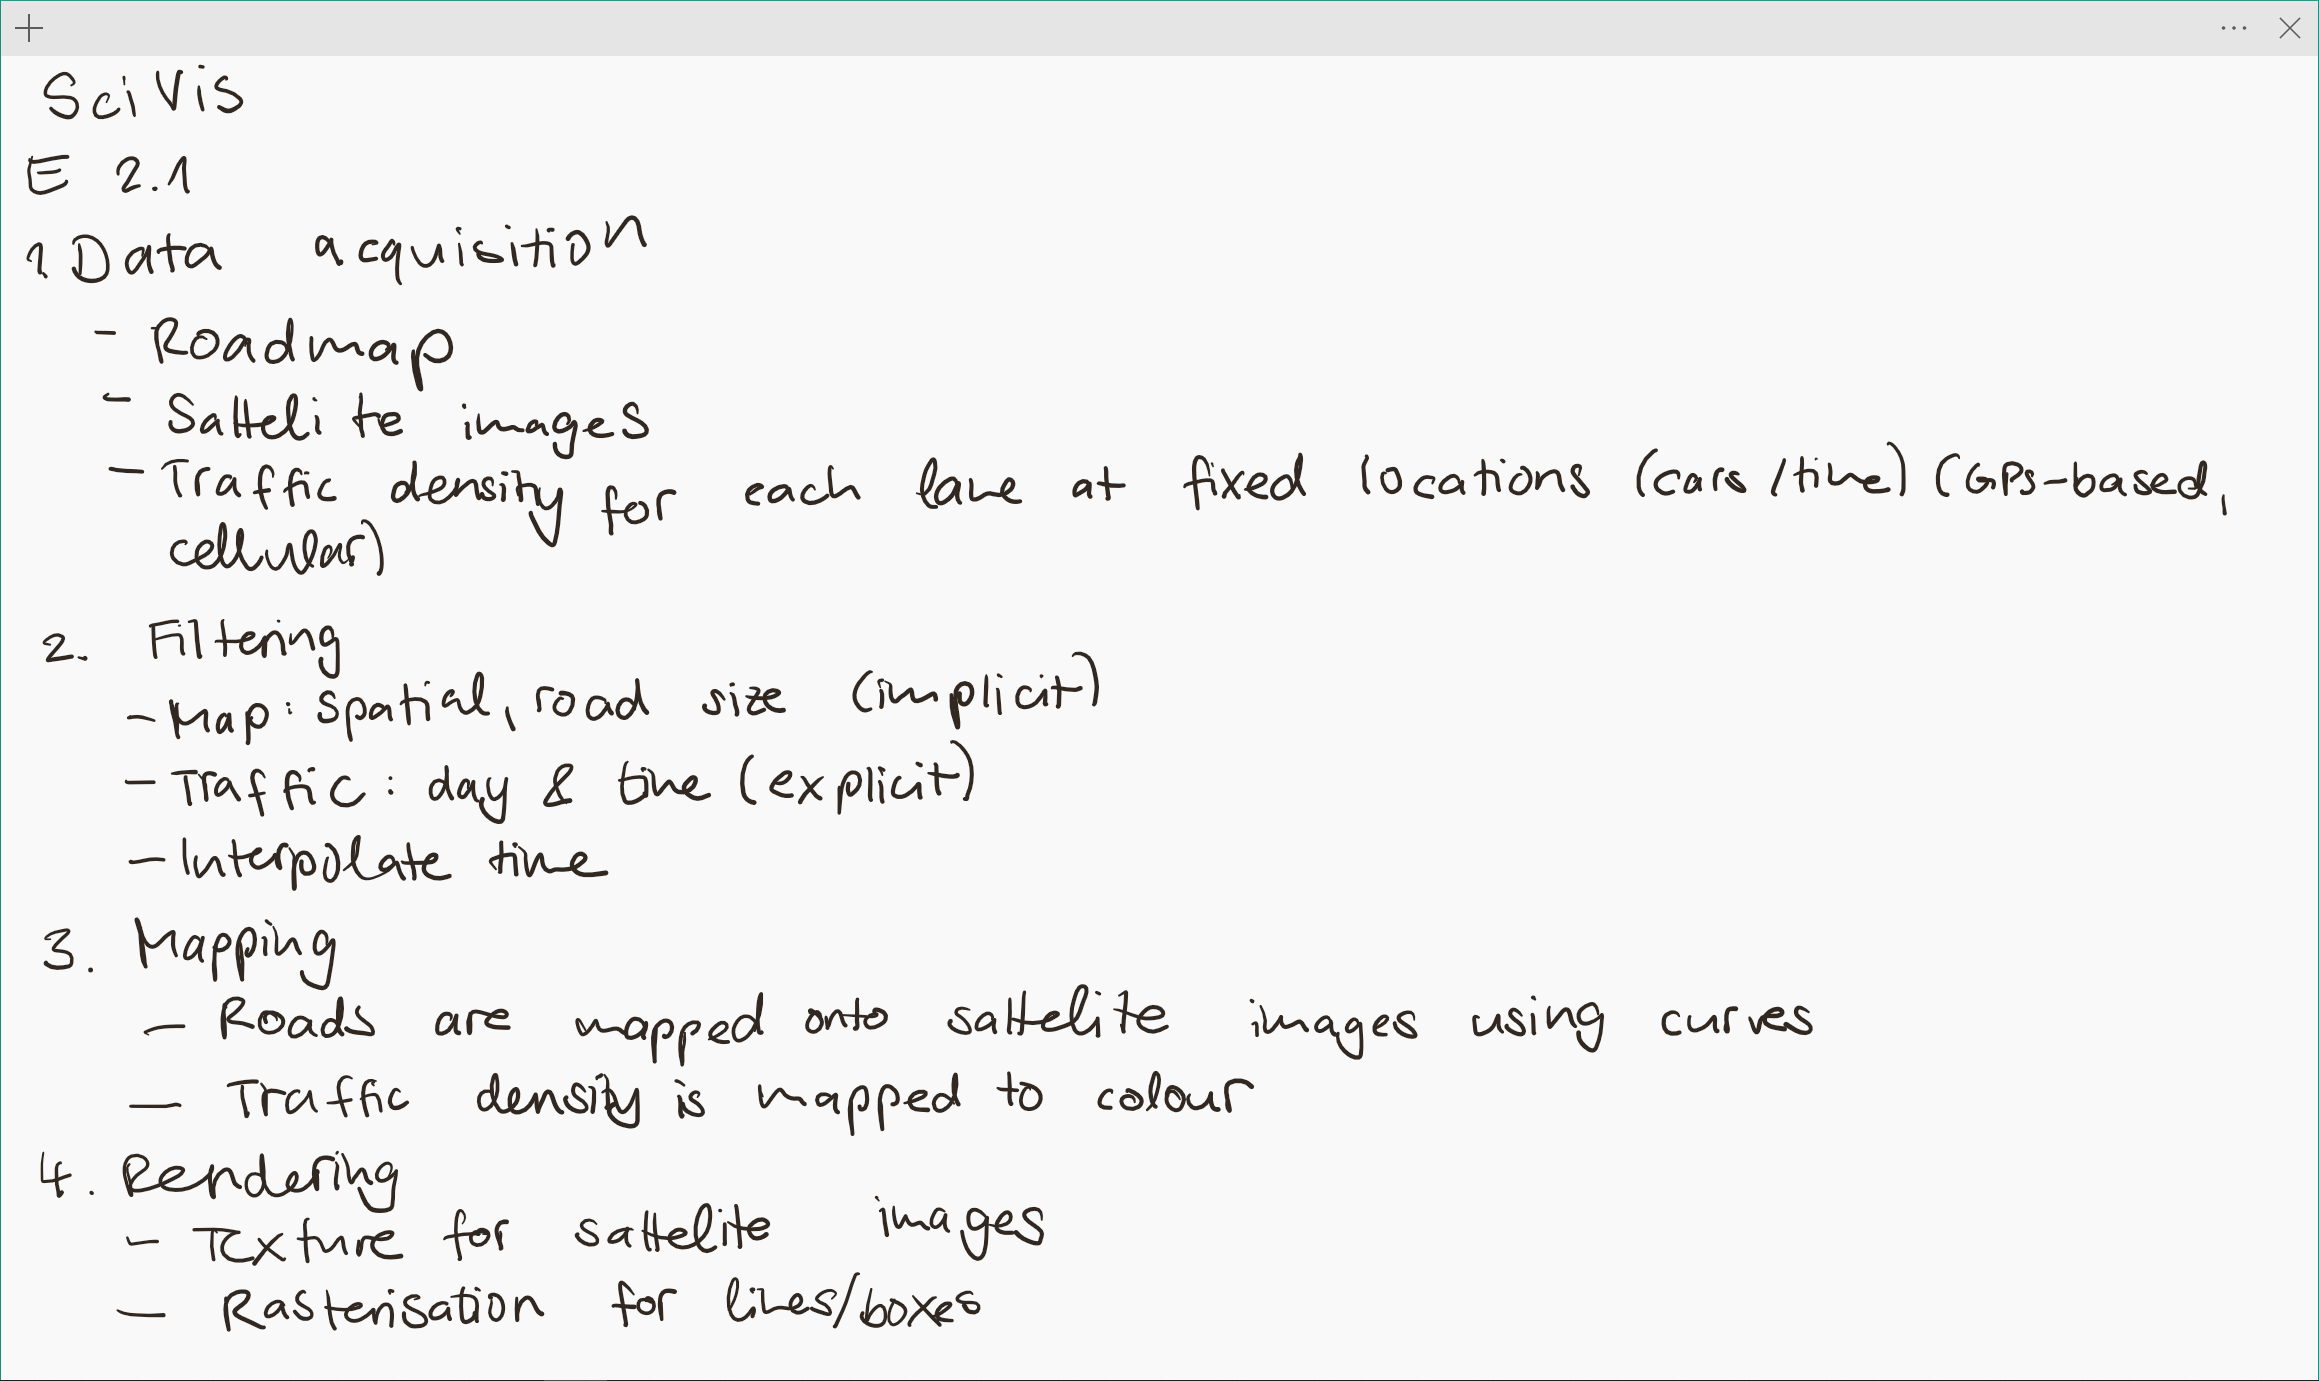 SciVis
E 2.1
1. Data acquisition
- Roadmap
- Sattelite images
- Traffic density for each lane at fixed locations (cars/time) (GPS-based,
cellular)
2. Filtering
- Map: spatial, road size (implicit)
- Traffic: day & time (explicit)
- Interpolate time
3. Mapping
- Roads are mapped onto sattelite images using curves
- Traffic density is mapped to colour
4. Rendering
- Texture for sattelite images
- Rasterisation for lines/boxes